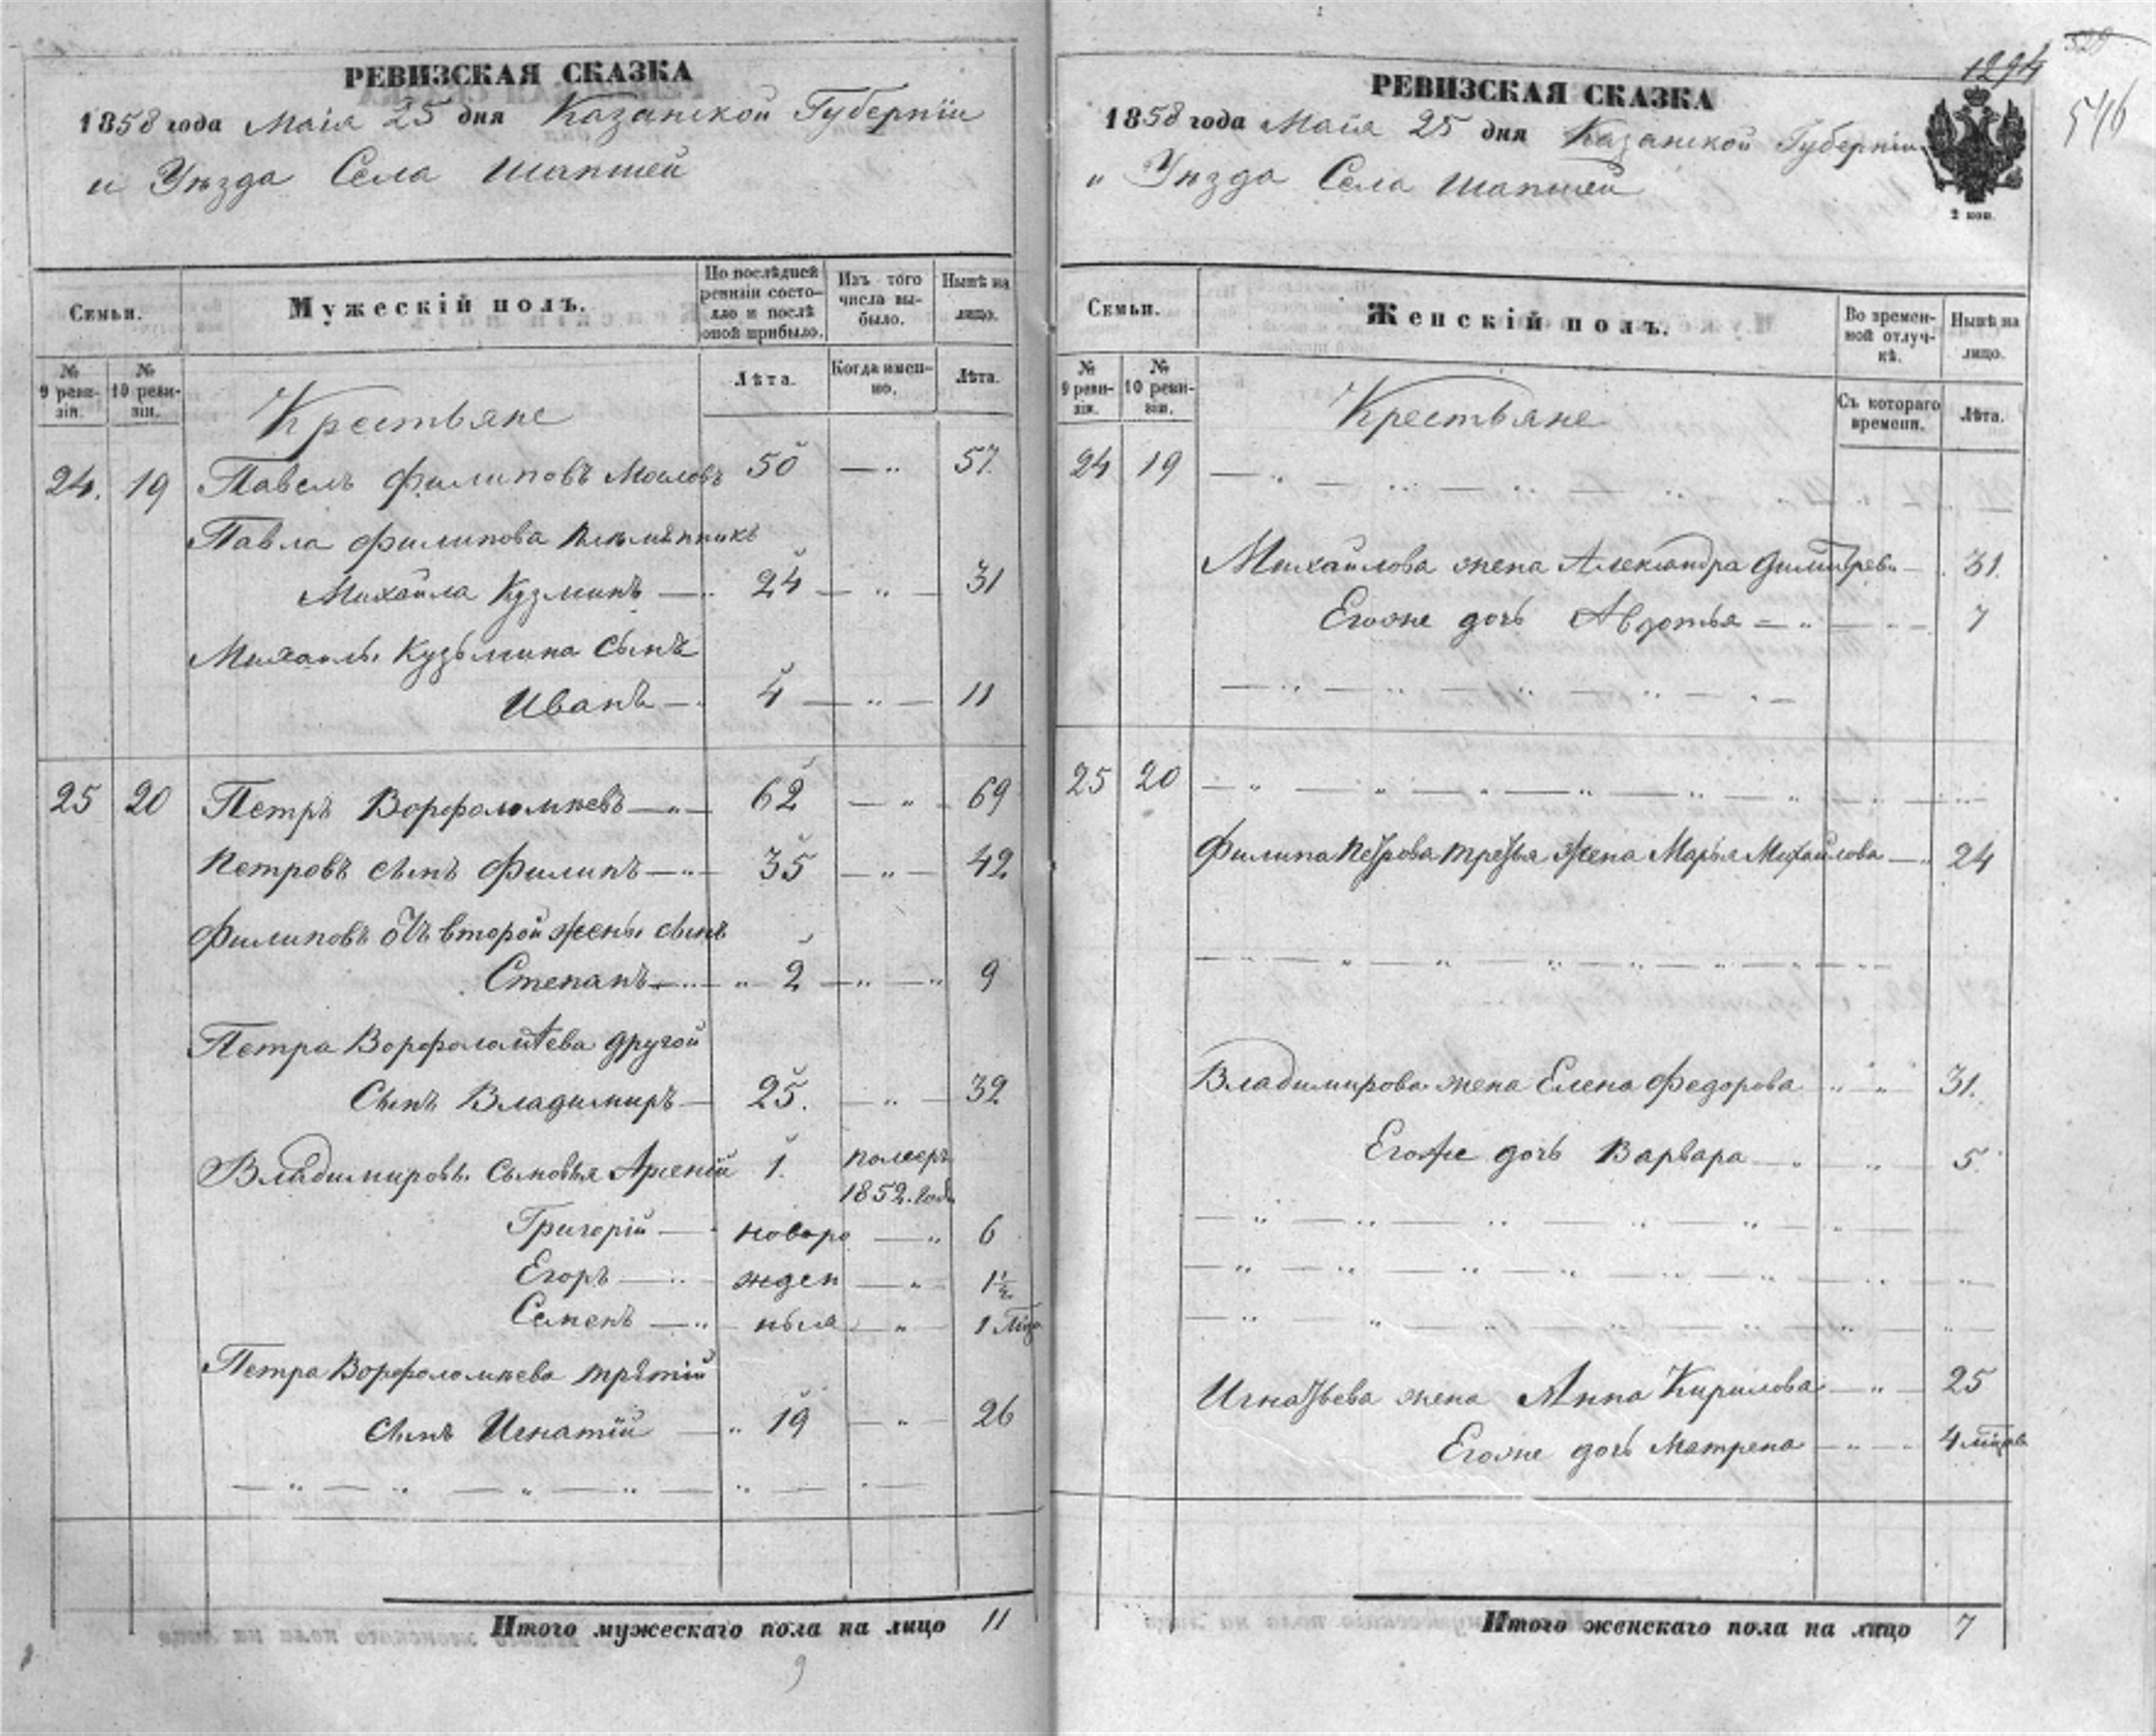 РЕВИЗСКАЯ СКАЗКА
1858 года Маія 25 дня Казанской Губерніи
и Уѣзда Села Шапшей
Семьи.
Мужескій полъ.
По послѣдней ревизіи состояло и послѣ оной прибыло.
Изъ того числа выбыло.
Нынѣ на лицо.
№ 9 ревизіи.
№ 10 ревизіи.
Лѣта.
Когда именно.
Лѣта.
Крестьяне
24. 19 Павелъ Филиповъ 50 — " 57.
Павла Филипова племянникъ
Михайла Кузминъ — 24 — " — 31
Михайлы Кузьмина сынъ
Иванъ — 4 — " — 11
25 20 Петръ Ворфоломѣевъ — " — 62 — " — 69
Петровъ сынъ Филипъ — " — 35 — " — 42
Филиповъ отъ второй жены сынъ
Степанъ — " — " 2 — " — " 9
Петра Ворфоломѣева другой
Сынъ Владимиръ — 25. — " — 32
Владимировы сыновья Арсеній 1. померъ
1852. года
Григорій — новоро — " 6
Егоръ — " жден — " 1 1/2
Семенъ — " ныя — " 1 мѣс
Петра Ворфоломѣева третій
сынъ Игнатій — " 19 — " — 26
Итого мужескаго пола на лицо 11
9
1294
546
РЕВИЗСКАЯ СКАЗКА
1858 года Маія 25 дня Казанской Губерніи
" Уѣзда Села Шапшей
2 коп.
Семьи.
Женскій полъ.
Во временной отлучкѣ.
Нынѣ на лицо.
№ 9 ревизіи.
№ 10 ревизіи.
Съ котораго времени.
Лѣта.
Крестьяне
24 19
Михайлова жена Александра Димитрева — 31.
Егоже дочь Авдотья — " — 7
25 20
Филипа Петрова третья жена Марья Михайлова — " 24
Владимирова жена Елена Федорова " " 31.
Егоже дочь Варвара — " — " — 5.
Игнатьева жена Анна Кирилова — " — 25
Егоже дочь Матрена — " — 4 мѣсяца
Итого женскаго пола на лицо 7